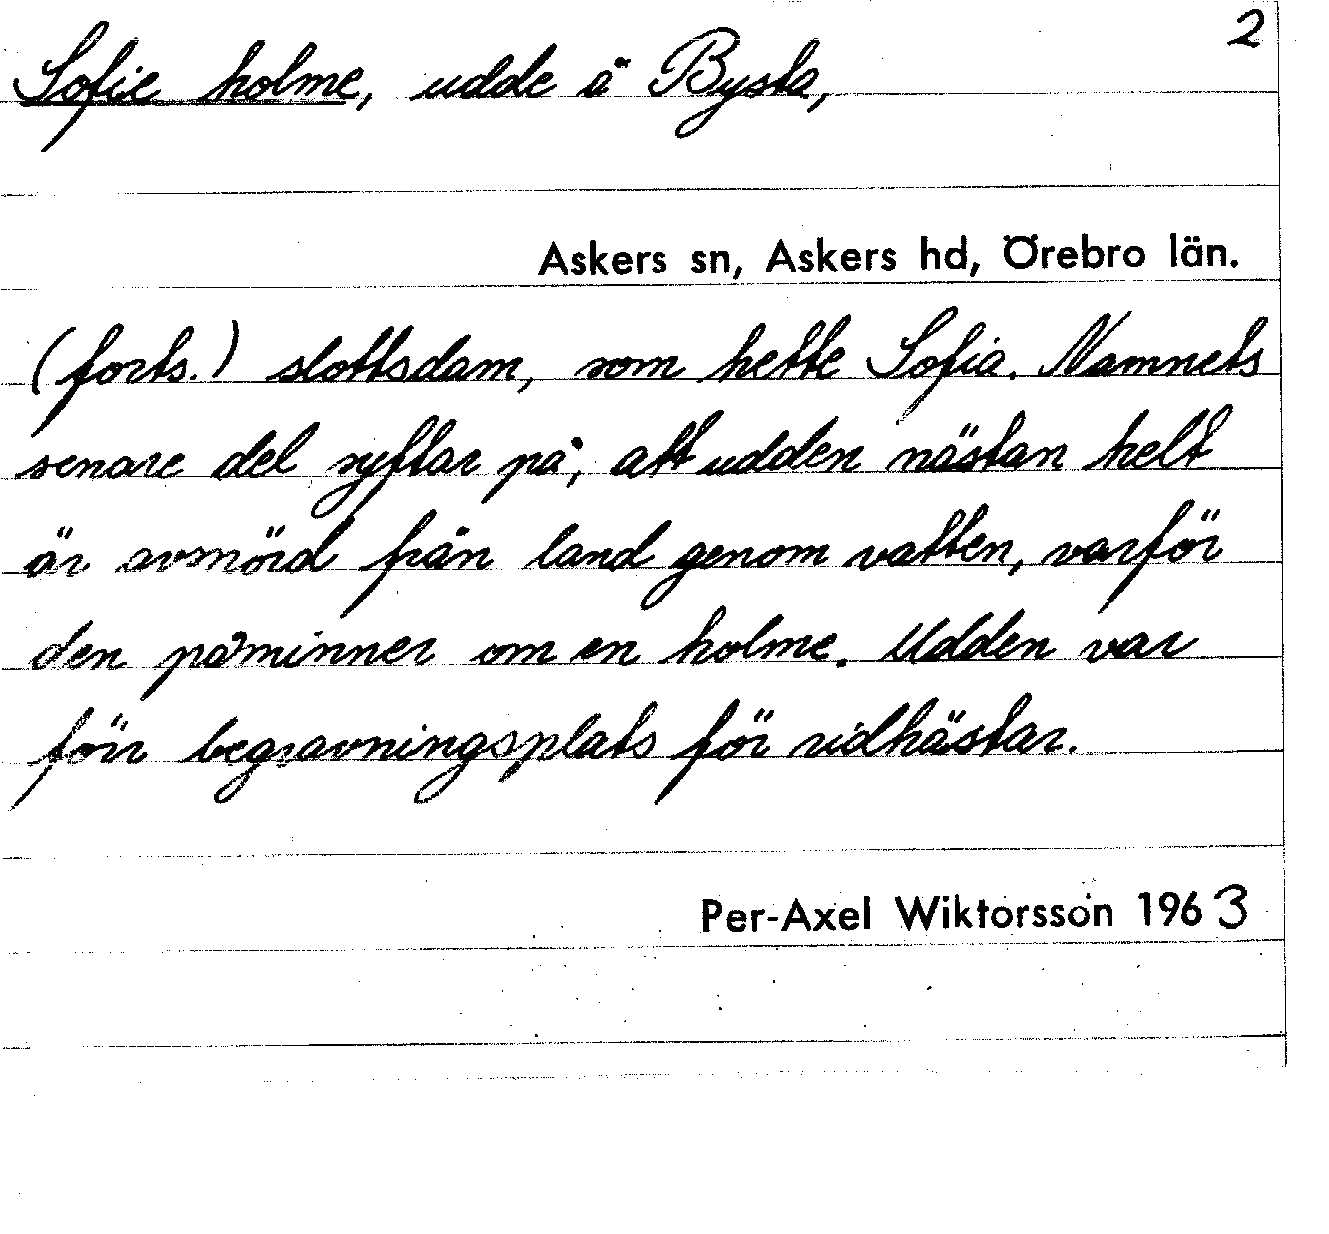 2
Sofie holme, udde å Bysta,
Askers sn, Askers hd, Örebro län.
(forts.) slottsdam, som hette Sofia. Namnets
senare del syftar på, att udden nästan helt
är avsnörd från land genom vatten, varför
den påminner om en holme. Udden var
förr begravningsplats för ridhästar.
Per-Axel Wiktorsson 1963